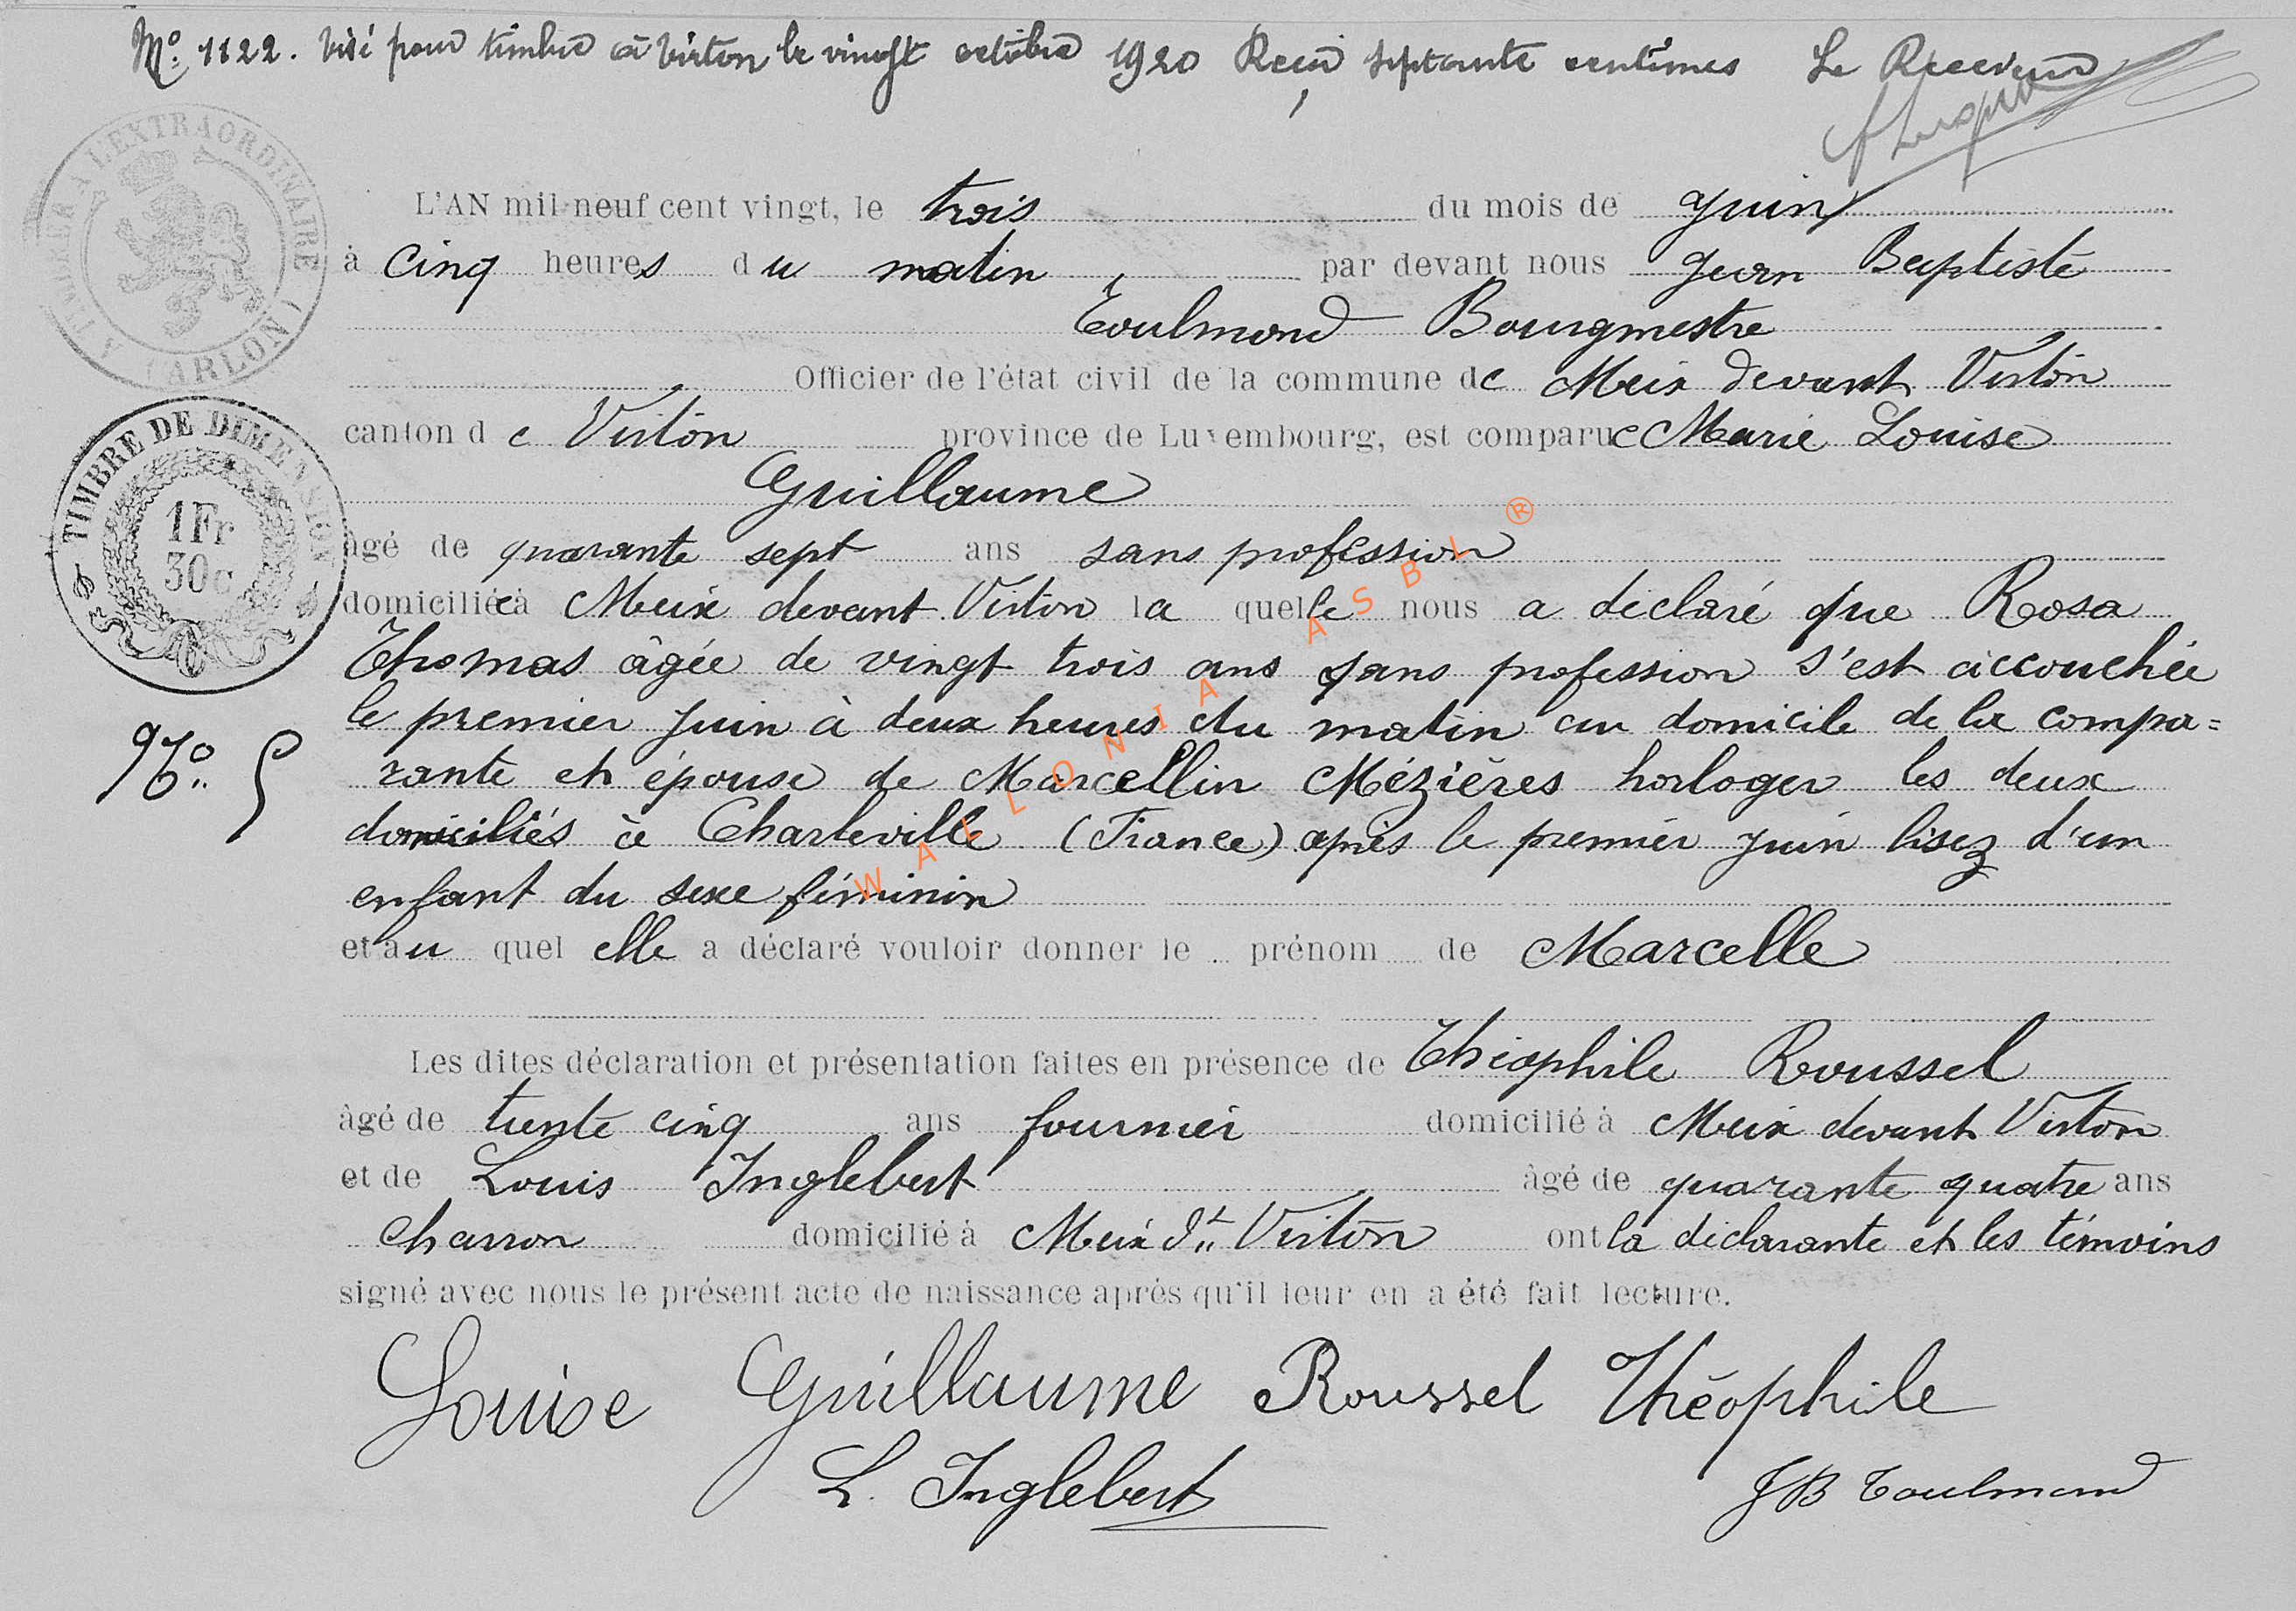 No 1122. Visé pour timbre à Virton le vingt octobre 1920 Reçu septante centimes Le Receveur
TIMBRE A L'EXTRAORDINAIRE
ARLON
L'AN mil neuf cent vingt, le trois du mois de Juin
à cinq heures du matin, par devant nous Jean Baptiste
Toulmond Bourgmestre
Officier de l'état civil de la commune de Meix devant Virton
canton de Virton province de Luxembourg, est comparue Marie Louise
Guillaume
TIMBRE DE DIMENSION
1Fr
30c
âgé de quarante sept ans sans profession
domiciliée à Meix devant Virton laquelle nous a déclaré que Rosa
Thomas âgée de vingt trois ans sans profession s'est accouchée
le premier Juin à deux heures du matin au domicile de la compa=
rante et épouse de Marcellin Mézières horloger les deux
domiciliés à Charleville (France) après le premier Juin lisez d'un
enfant du sexe féminin
et au quel elle a déclaré vouloir donner le prénom de Marcelle
Les dites déclaration et présentation faites en présence de Théophile Roussel
âgé de trente cinq ans fournier domicilié à Meix devant Virton
et de Louis Inglebert âgé de quarante quatre ans
charron domicilié à Meix dt Virton ont la déclarante et les témoins
signé avec nous le présent acte de naissance après qu'il leur en a été fait lecture.
Louise Guillaume Roussel Théophile
L. Inglebert JB Toulmond
WALLONIA ASBL ®